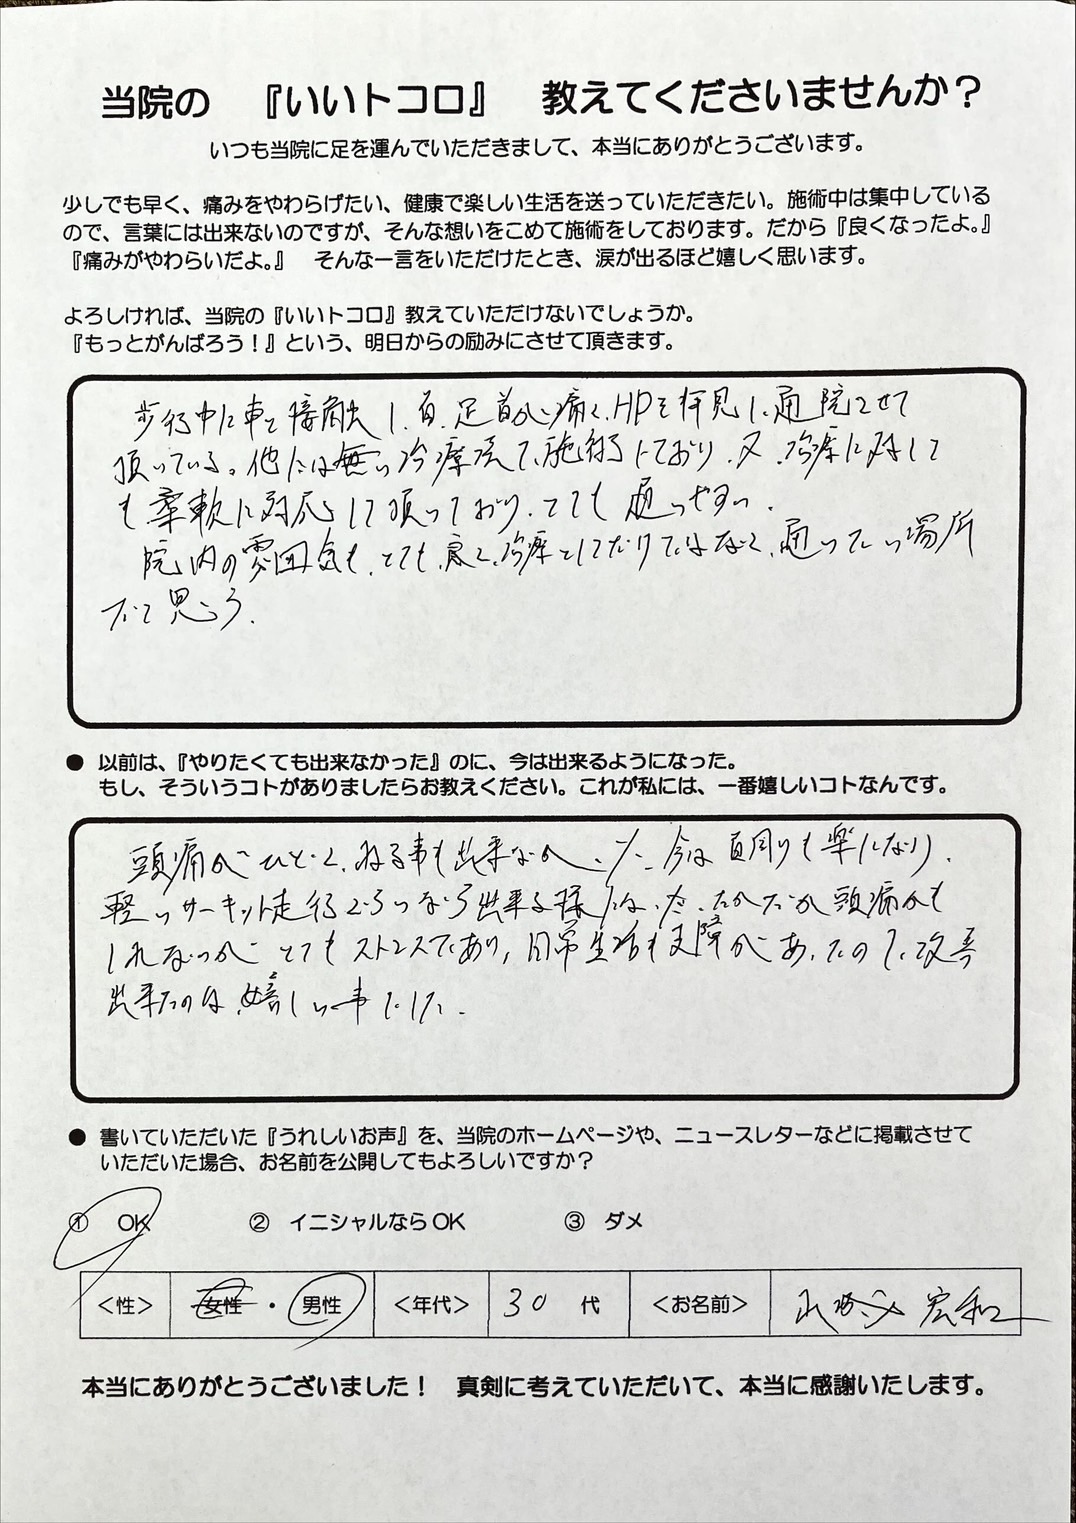 当院の 『いいトコロ』 教えてくださいませんか？
いつも当院に足を運んでいただきまして、本当にありがとうございます。
少しでも早く、痛みをやわらげたい、健康で楽しい生活を送っていただきたい。施術中は集中している
ので、言葉には出来ないのですが、そんな想いをこめて施術をしております。だから『良くなったよ。』
『痛みがやわらいだよ。』 そんな一言をいただけたとき、涙が出るほど嬉しく思います。
よろしければ、当院の『いいトコロ』教えていただけないでしょうか。
『もっとがんばろう！』という、明日からの励みにさせて頂きます。
歩行中に車と接触し、首、足首が痛く、HPを拝見し、通院させて
頂いている。他には無い治療法で、施術しており、又、治療に対して
も柔軟に対応して頂いており、とても通いやすい。
院内の雰囲気も、とても良く、治療としてだけではなく、通いたい場所
だと思う。
● 以前は、『やりたくても出来なかった』のに、今は出来るようになった。
もし、そういうコトがありましたらお教えください。これが私には、一番嬉しいコトなんです。
頭痛がひどく、ねる事も出来なかった。今は首周りも楽になり、
軽いサーキット走行ぐらいなら出来る様になった。たかだか頭痛かも
しれないが とてもストレスであり、日常生活も支障があったので、改善
出来たのは、嬉しい事でした。
● 書いていただいた『うれしいお声』を、当院のホームページや、ニュースレターなどに掲載させて
いただいた場合、お名前を公開してもよろしいですか？
① OK ② イニシャルならOK ③ ダメ
<性> 女性 ・ 男性 <年代> 30 代 <お名前> 宏和
本当にありがとうございました！ 真剣に考えていただいて、本当に感謝いたします。